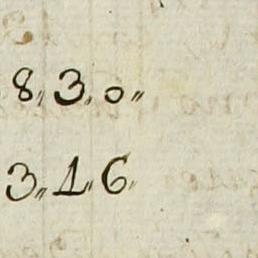 8,,3,,0,,
3,,1,,6,,